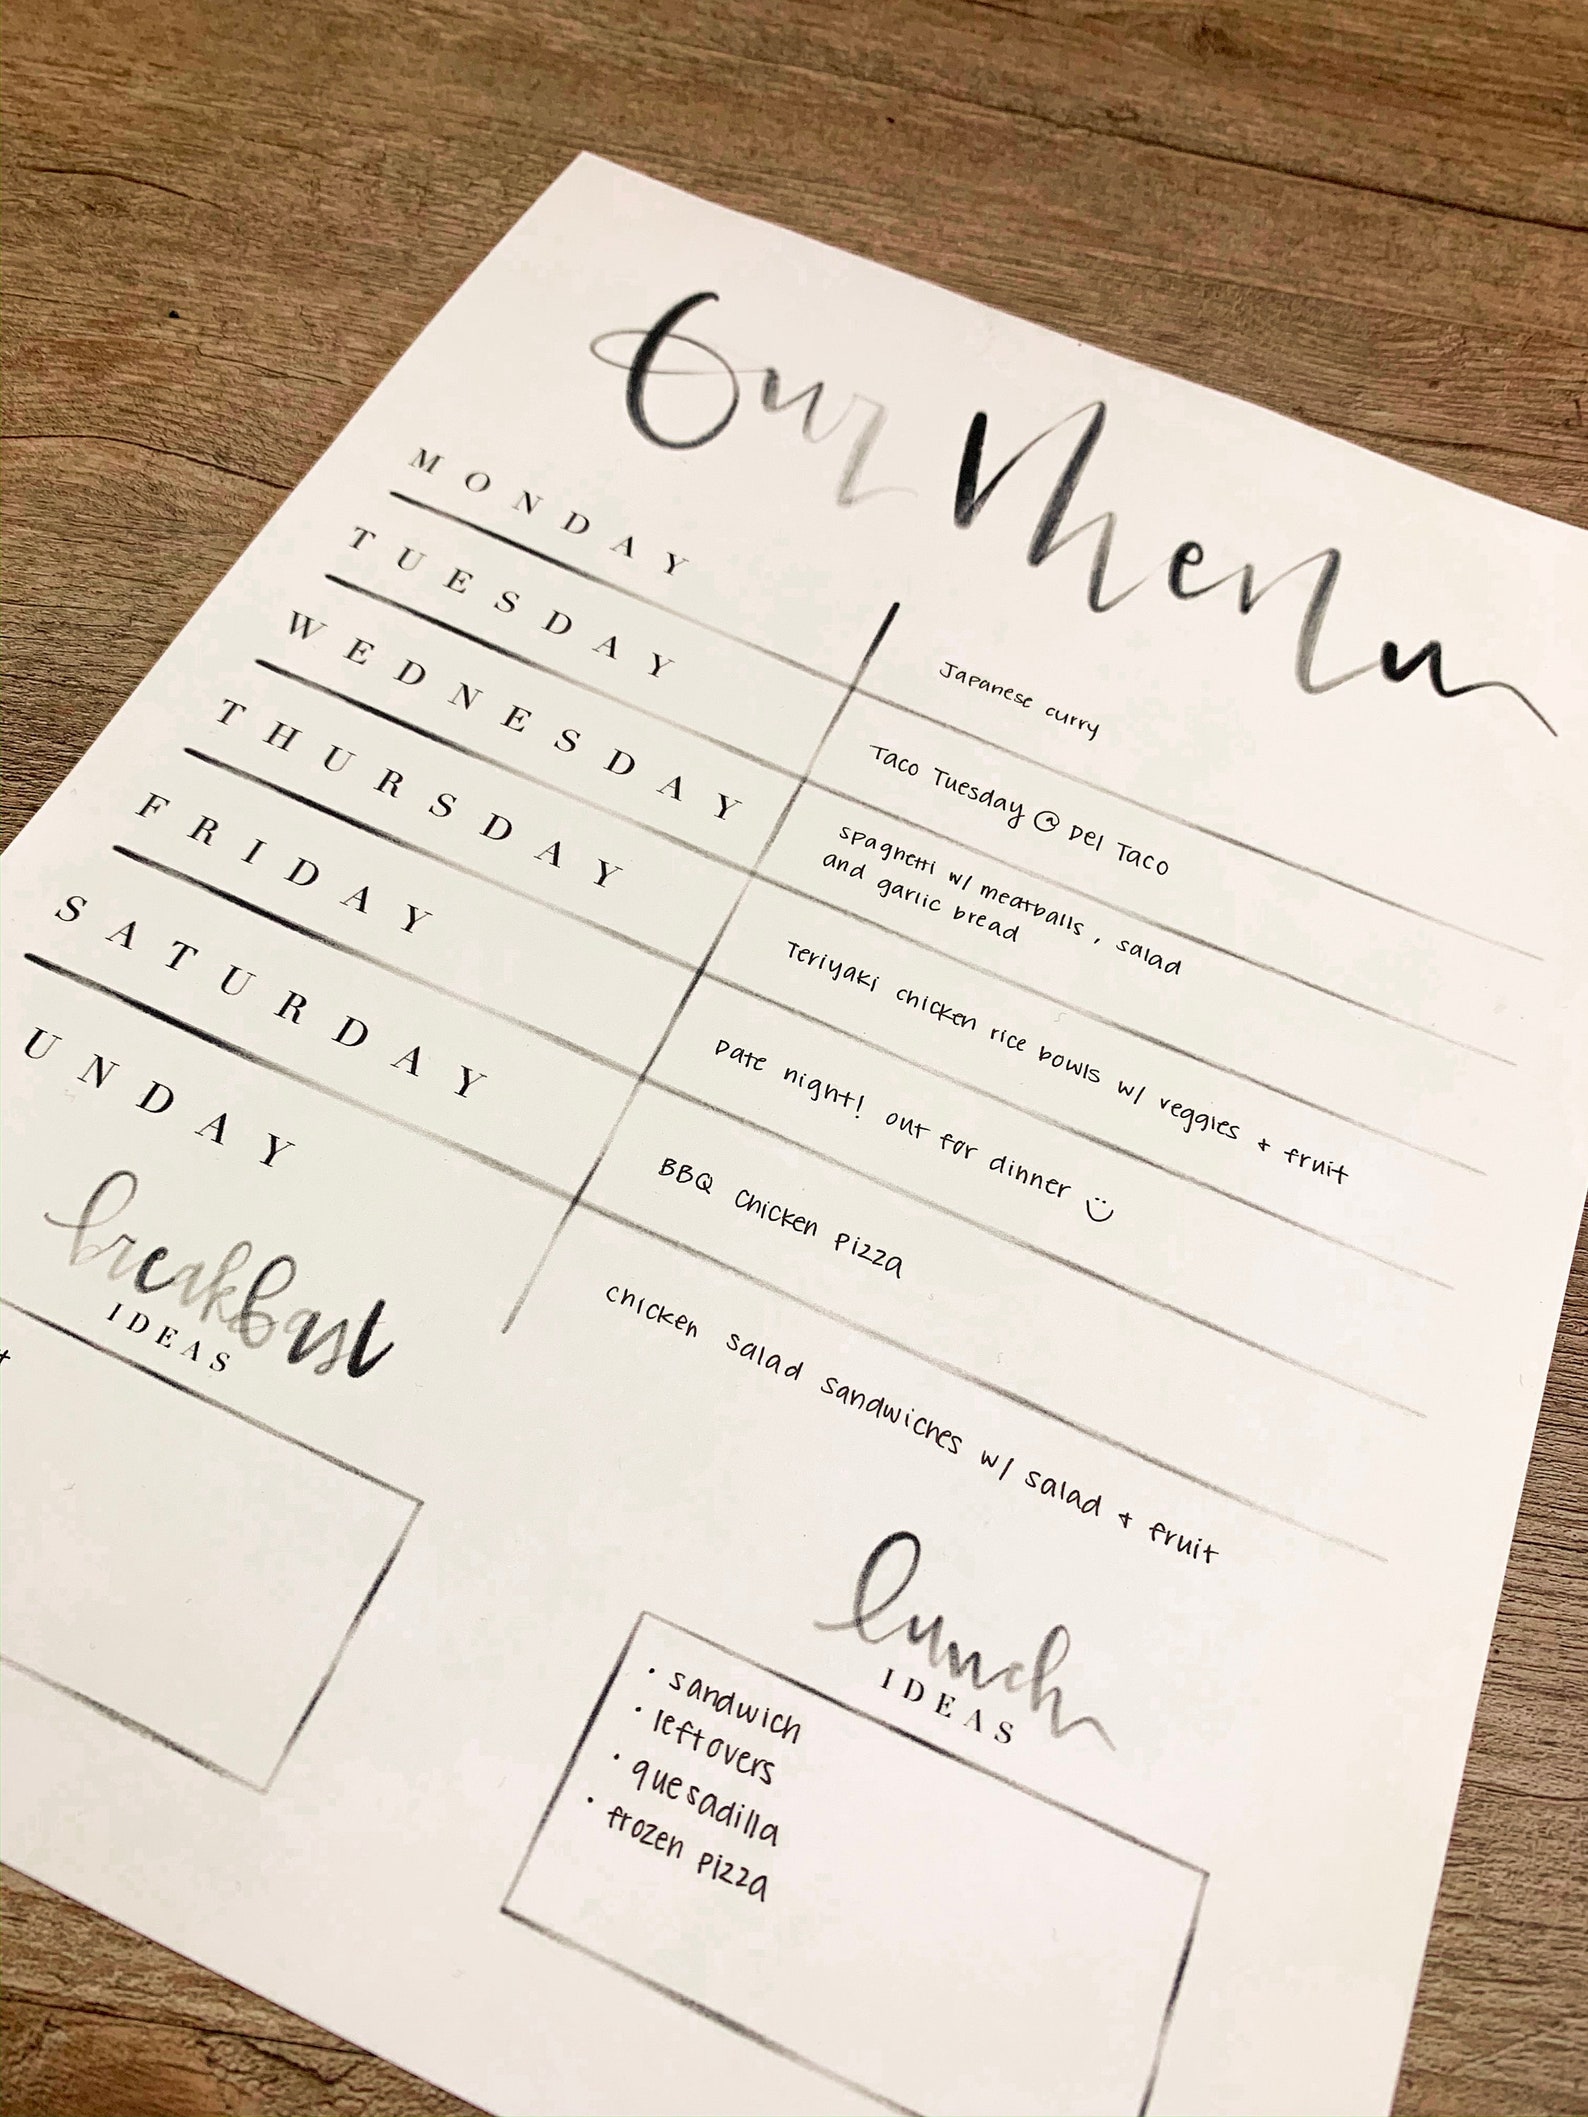 Our Menu
MONDAY
Japanese curry
TUESDAY
Taco Tuesday @ Del Taco
WEDNESDAY
spaghetti w/ meatballs, salad
and garlic bread
THURSDAY
Teriyaki chicken rice bowls w/ veggies + fruit
FRIDAY
Date night! out for dinner
SATURDAY
BBQ Chicken Pizza
UNDAY
chicken salad sandwiches w/ salad + fruit
breakfast
IDEAS
lunch
IDEAS
• sandwich
• leftovers
• quesadilla
• frozen pizza